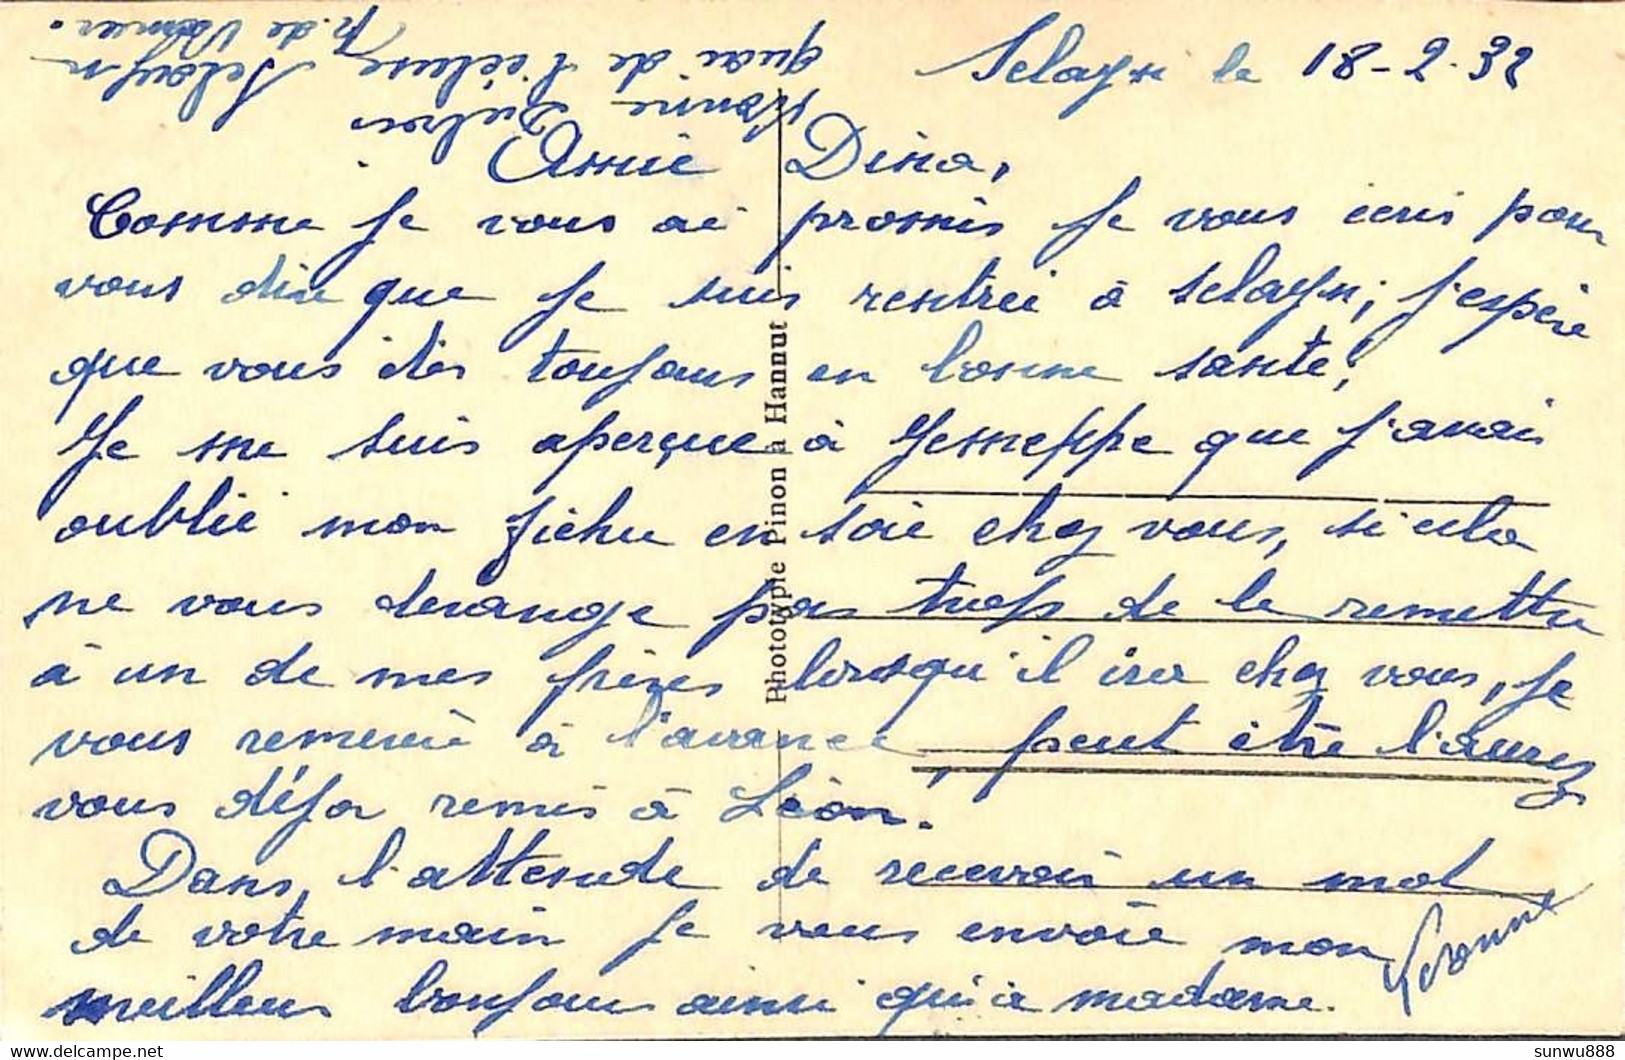 Selayn le 18-2-32
Yvonne Dubois
quai de l'écluse, Selayn
p. de Namur.
Amie Dina,
Comme je vous ai promis je vous écris pour
vous dire que je suis rentrée à Selayn; j'espère
que vous êtes toujours en bonne santé;
Je me suis aperçue à Jemeppe que j'avais
oublié mon fichu en soie chez vous, si cela
ne vous derange pas trop de le remettre
à un de mes frères lorsqu'il ira chez vous, je
vous remercie à l'avance, peut être l'aurez
vous déja remis à Léon.
Dans, l'attende de recevoir un mot
de votre main je vous envoie mon
meilleur bonjour ainsi qu'à madame.
Yvonne
Phototypie Pinon à Hannut
sunwu888